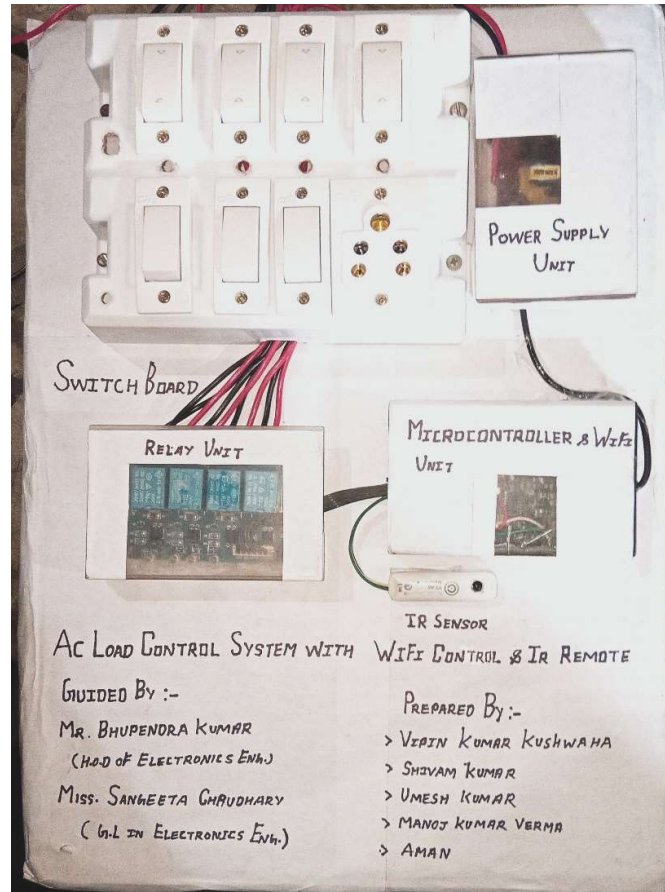 POWER SUPPLY
UNIT
SWITCH BOARD
RELAY UNIT
MICROCONTROLLER & WIFI
UNIT
IR SENSOR
AC LOAD CONTROL SYSTEM WITH WIFI CONTROL & IR REMOTE
GUIDED BY :-
MR. BHUPENDRA KUMAR
(H.O.D OF ELECTRONICS ENG.)
MISS. SANGEETA CHAUDHARY
( G.L IN ELECTRONICS ENG.)
PREPARED BY :-
> VIPIN KUMAR KUSHWAHA
> SHIVAM KUMAR
> UMESH KUMAR
> MANOJ KUMAR VERMA
> AMAN